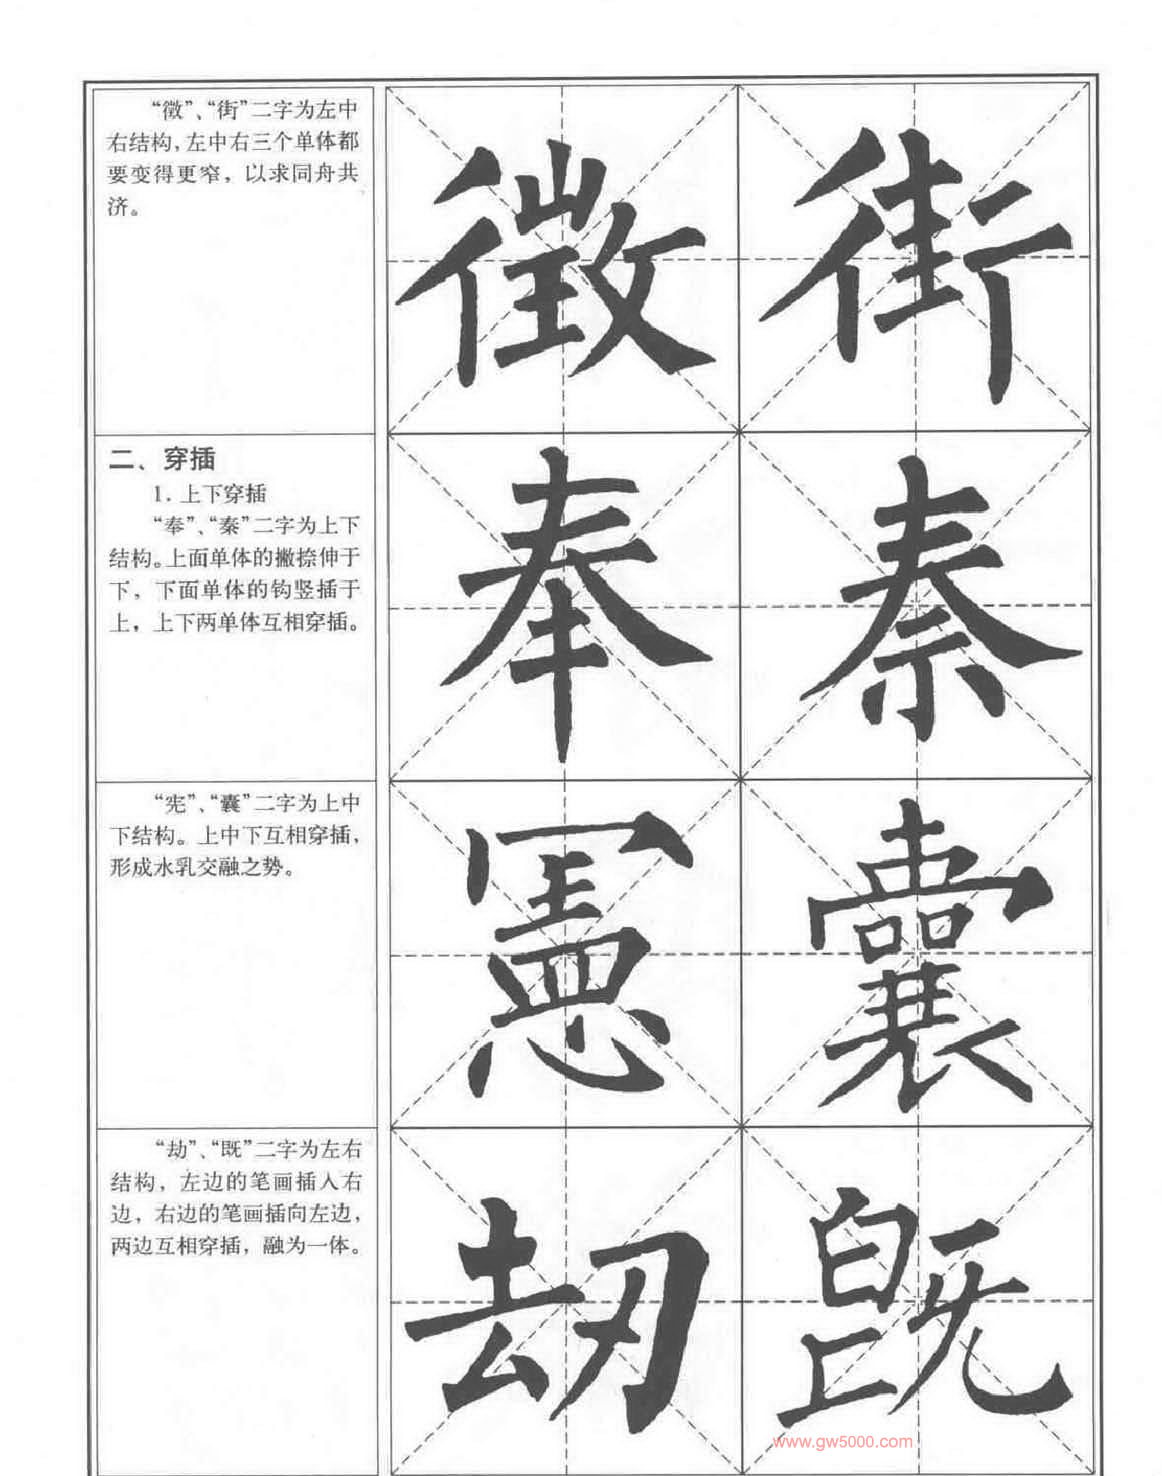 “徵”、“街”二字为左中
右结构，左中右三个单体都
要变得更窄，以求同舟共
济。
徵 街
二、穿插
1. 上下穿插
“奉”、“秦”二字为上下
结构。上面单体的撇捺伸于
下，下面单体的钩竖插于
上，上下两单体互相穿插。
奉 秦
“宪”、“囊”二字为上中
下结构。上中下互相穿插，
形成水乳交融之势。
憲 囊
“劫”、“既”二字为左右
结构，左边的笔画插入右
边，右边的笔画插向左边，
两边互相穿插，融为一体。
刼 既
www.gw5000.com